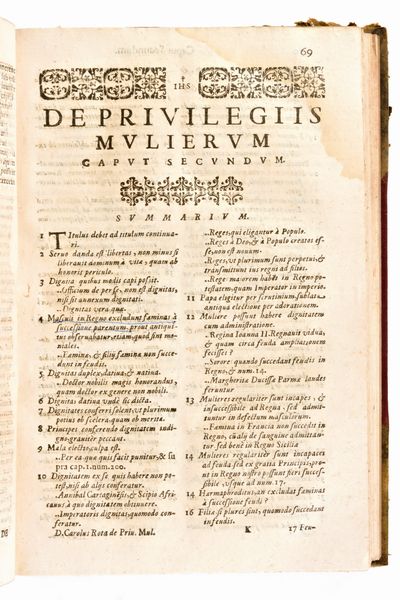 69
IHS
DE PRIVILEGIIS
MVLIERVM
CAPVT SECVNDVM.
SVMMARIVM.
1 Titulus debet ad titulum continua-
ri.
2 Servo danda est libertas, non minus si
liberavit dominum à vita, quam ab
honoris periculo.
3 Dignitas quibus modis capi possit.
..Officium de per se, non est dignitas,
nisi sit annexum dignitati.
..Dignitas vera quæ.
4 Masculi in Regno excludunt fæminas à
successione parentum, prout antiqui-
tus observabatur, etiam quod sint mo-
niales.
..Fæminæ, & filij fæminæ non succe-
dunt in feudis.
5 Dignitas duplex, dativa, & nativa.
..Doctor nobilis magis honorandus,
quam doctor ex genere non nobilis.
6 Dignitas dativa undè sic dicta.
7 Dignitates conferri solent, ut plurimum
potius ob scelera, quam ob merita.
8 Principes conferendo dignitatem indi-
gno, graviter peccant.
9 Mala electio, culpa est.
..Per ea quæ quis facit punitur, & su
pra cap. 1. num. 200.
10 Dignitatem ex se quis habere non po-
test, nisi ab alijs conferatur.
..Annibal Cartaginensis, & Scipio Afri-
canus à quo dignitatem obtinuere.
..Imperatoris dignitas, quomodo con-
feratur.
D. Carolus Rota de Priu. Mul.
..Reges, qui eligantur à Populo.
..Reges à Deo, & à Populo creatos es-
se, non est novum.
..Reges, ut plurimum sunt perpetui, &
transmittunt ius regni ad filios.
..Rege maiorem habet in Regno po-
testatem, quam Imperator in imperio.
11 Papa eligitur per scrutinium, sublata
antiqua electione per adorationem.
12 Muliere possunt habere dignitatem
cum administratione.
..Regina Ioanna II. Regnavit vidua,
& quam circa feuda ampliationem
fecisset?
..Sorore quando succedant feudis in
Regno, & num. 14.
..Margheritæ Ducissæ Parmæ laudes
feruntur.
13 Mulieres regulariter sunt incapes, &
insuccessibile ad Regna, sed admit-
tuntur in defectum masculorum.
..Fæmina in Francia non succedit in
Regno, cùm alij de sanguine admittan-
tur, sed benè in Regno Sicilia
14 Mulieres regulariter sunt incapaces
ad feuda, sed ex gratia Principis, pro-
ut in Regno nostro possunt fieri succes-
sibile, usque ad num. 17.
14 Harmaphroditus, an excludat fæminas
à successione feudi?
16 Filiæ si plures sint, quomodo succedant
in feudis.
K
17 Feu-